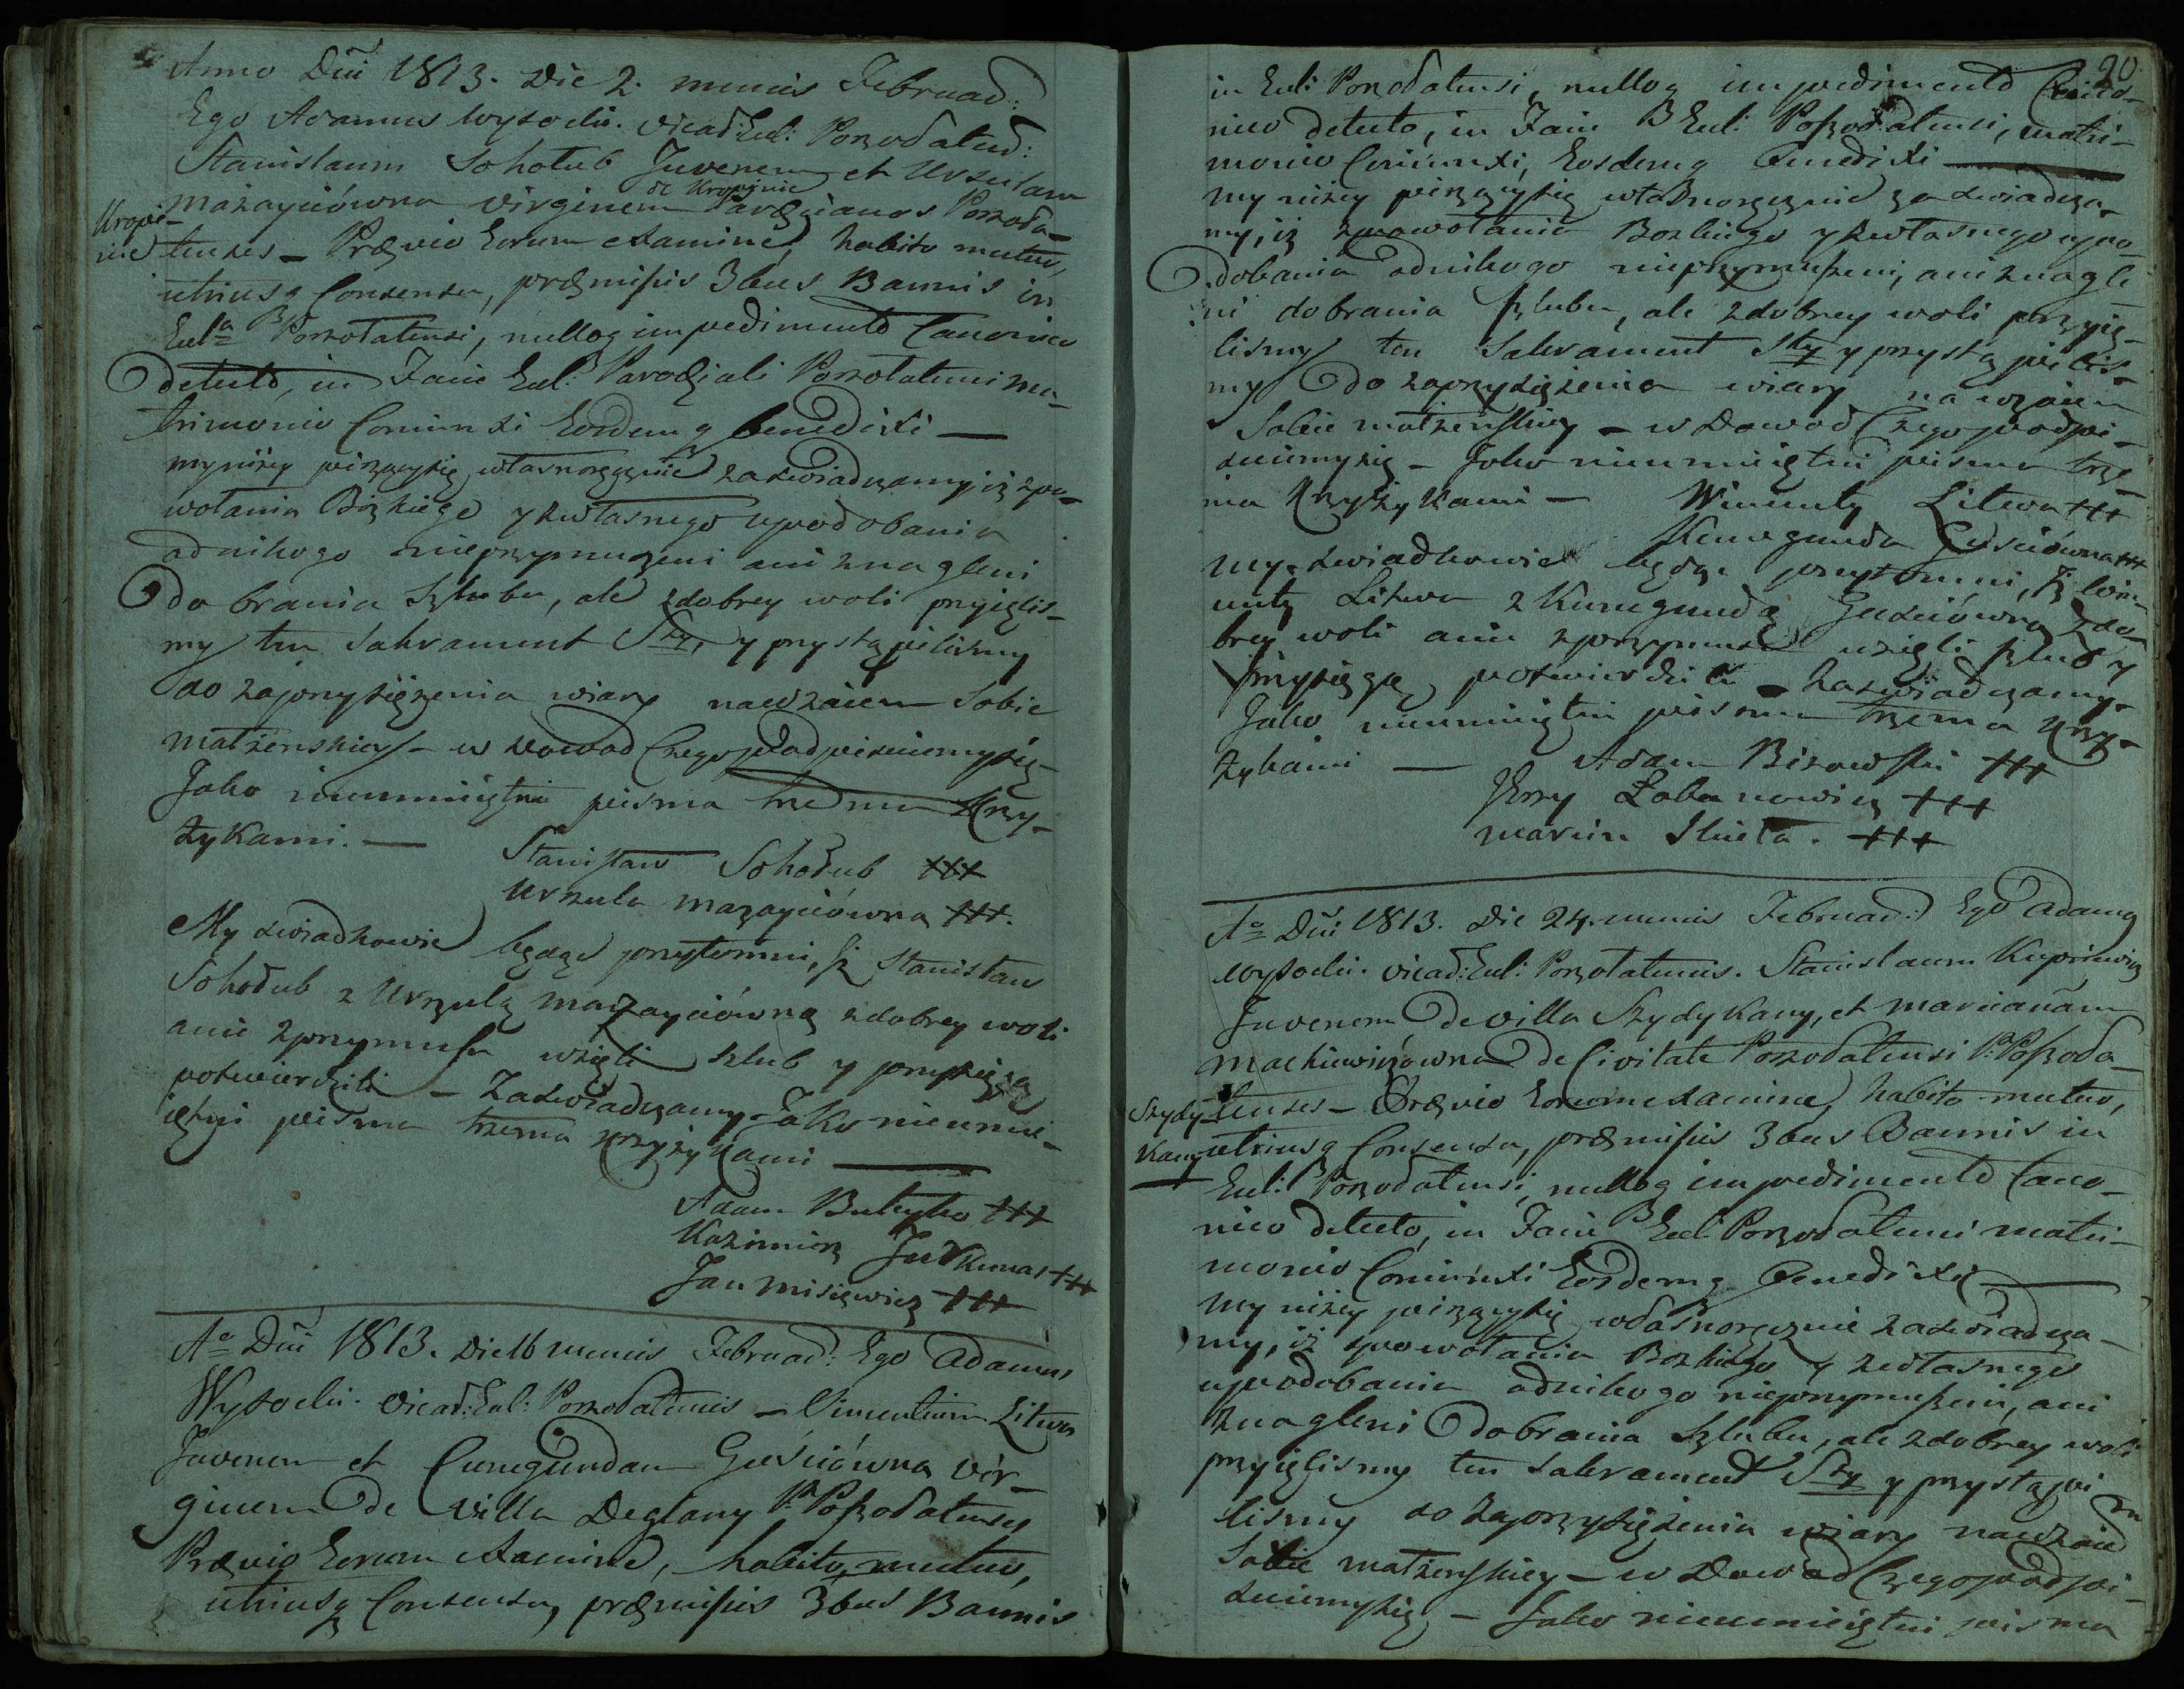 Anno Dni 1813. Die 2. mensis Februar:
Ego Adamus Wysocki. Vicar: Eccl: Poszołaten:
Stanislaum Sohołub Juvenem et Ursulam
de Kropinie
mazayciówna virginem Parochianos Poszoła-
Kropi-
nie
tenses - Prævio Eorum examine, habito mutuo,
utriusq Consensu, præmissis 3bus Bannis in
Eccla Poszołatensi, nulloq impedimento Canonico
detecto, in Facie Eccl: Parochiali Poszołatensi ma-
trimonio Coniunxi Eosdemq benedixi —
my niżey piszący się własnoręcznie zaswiadczamy iż z po-
wołania Bozkiego y z własnego upodobania
od nikogo nieprzymuszeni ani znagleni
do brania Szlubu, ale z dobrey woli przyięlis-
my ten Sakrament Sty, y przystąpilismy
do zaprzysiężenia wiary nawzaiem Sobie
małżenskiey - w dowod Czego podpisuiemy się -
Jako nieumiiętni pisma trzema Krzy-
żykami. —
Stanisław Sohołub +++
Urszula mazayciówna +++.
My swiadkowie będąc przytomni, Jż Stanisław
Sohołub z Urszulą mazayciówną z dobrey woli
anie z przymusu wzięli szlub y przysięgą
potwierdzili - Zaswiadczamy Jako nieumi-
iętni pisma trzema krzyżykami —
Adam Butryko +++
Kazimirz Jurkunas +++
Jan Misiewicz +++
Ao Dni 1813. Die 16 mensis Februar: Ego Adamus
Wysocki. Vicar: Eccl: Poszołatensis - Vincentium Litwa
Juvenem et Cunegundam Guściówna vir-
ginem de Villa Deglany P: Poszołatensis
Prævio Eorum examine, habito, mutuo,
utriusq Consensu, præmissis 3bus Bannis
20.
in Eccl: Poszołatensi, nulloq impedimento Cano-
nico detecto, in Facie Eccl: Poszołatensi, matri-
monio Coniunxi, Eosdemq Benedixi —
My niżey piszący się własnoręcznie zaswiadcza-
my, iż z powołania Bozkiego y z własnego upo-
dobania od nikogo nieprzymuszeni, ani znagle-
ni do brania szlubu, ale z dobrey woli przyię-
lismy ten Sakrament Sty y przystąpilis-
my do zaprzysiężenia wiary nawzaiem
Sobie małżenskiey - w Dowod Czego podpi-
suiemy się - Jako nieumiiętni pisma trze-
ma krzyżykami — Wincenty Litwa +++
Kunegunda Guściówna +++
my swiadkowie będąc przytomni, Jż Win-
centy Litwa z Kunegundą Guściówną z do-
brey woli anie z przymusu wzięli szlub y
przysięgą potwierdzili - Zaswiadczamy -
Jako nieumiiętni pisma trzema krzy-
żykami —
Adam Bizowski +++
Jerzy Łabanowicz +++
marcin Skieta. +++
Ao Dni 1813. Die 24. mensis Februar: Ego Adamus
Wysocki. Vicar: Eccl: Poszołatensis. Stanislaum Kupriewicz
Juvenem de villa Szydykany, et mariannam
mackiewiczówna de Civitate Poszołatensi P: Poszoła-
Szydy-
kany
tenses - Prævio Eorum examine, habito mutuo,
utriusq Consensu, præmissis 3bus Bannis in
Eccl: Poszołatensi, nulloq impedimento Cano-
nico detecto, in Facie Eccl: Poszołatensi matri-
monio Coniunxi Eosdemq Benedixi —
My niżey piszący się własnoręcznie zaswiadcza-
my, iż z powołania Bozkiego y z własnego
upodobania od nikogo nieprzymuszeni, ani
znagleni do brania Szlubu, ale z dobrey woli
przyięlismy ten Sakrament Sty y przystąpi
lismy do zaprzysiężenia wiary nawzaiem
Sobie małżenskiey - w Dowod Czego podpi-
suiemy się - Jako nieumiiętni pisma